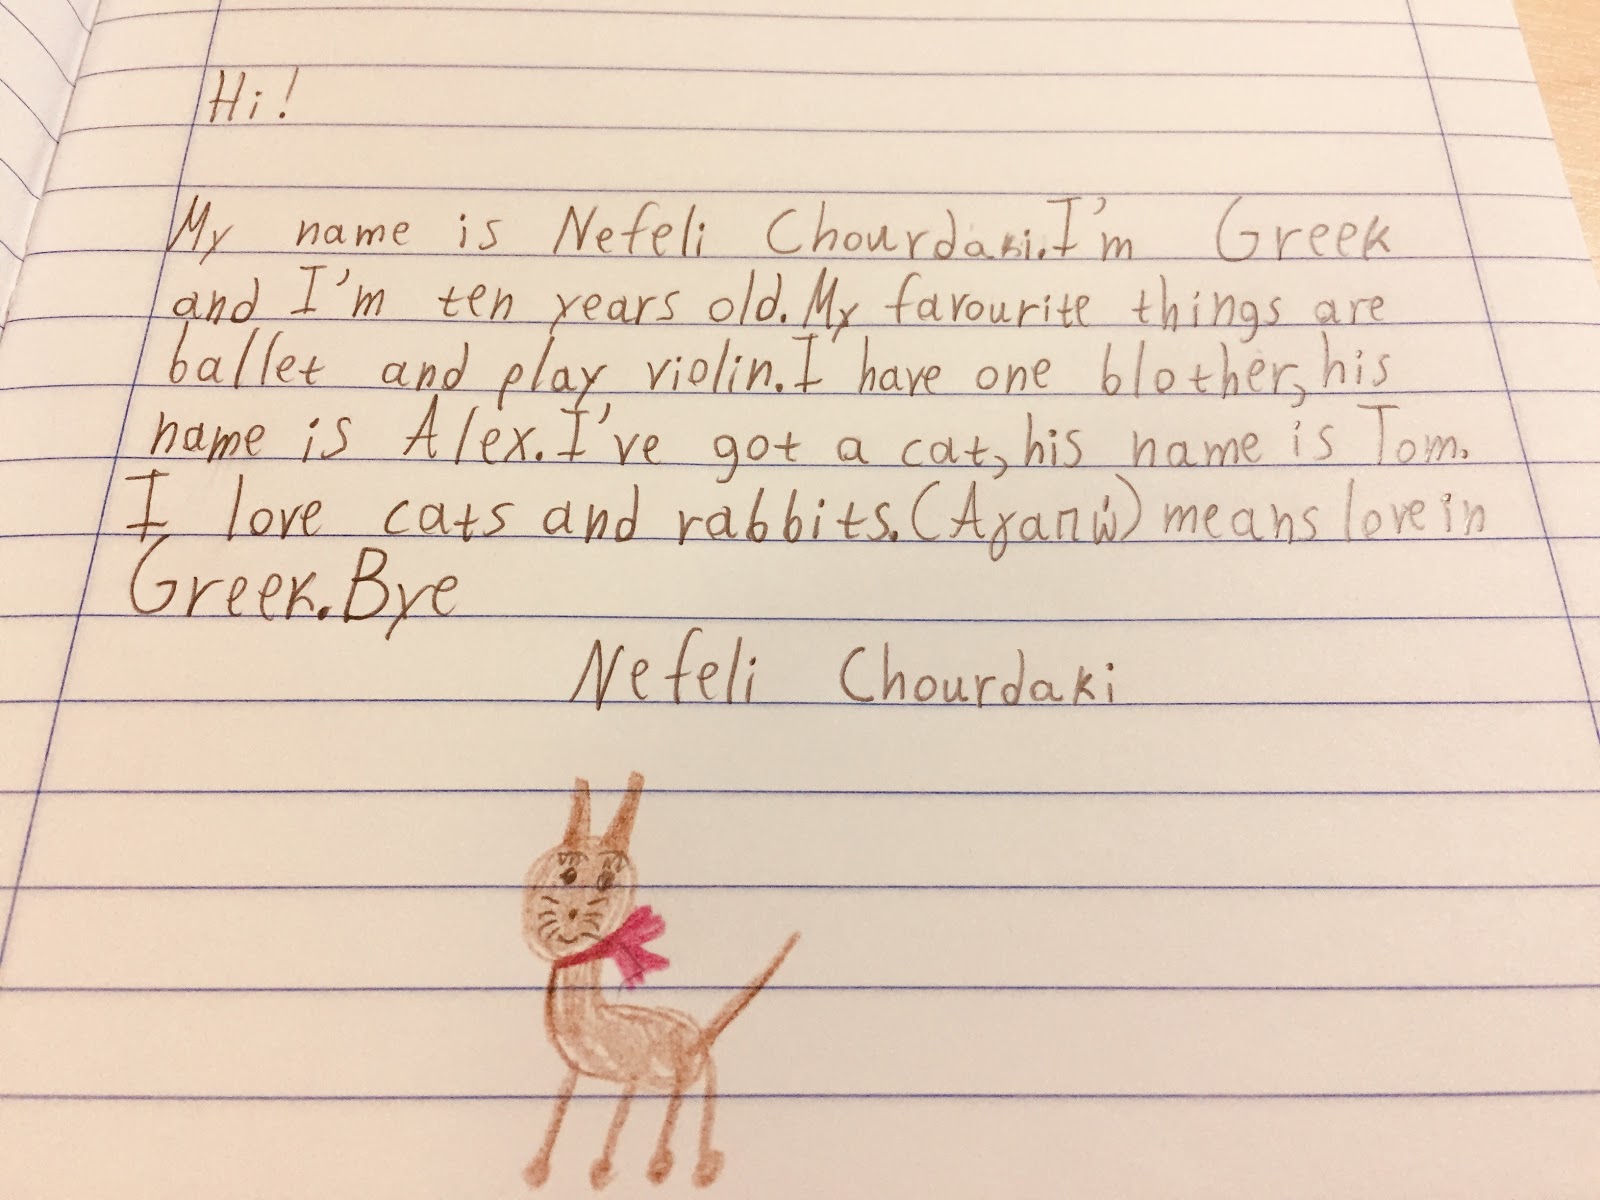 Hi!
My name is Nefeli Chourdaki.I'm Greek
and I'm ten years old.My favourite things are
ballet and play violin.I have one blother, his
name is Alex.I've got a cat, his name is Tom.
I love cats and rabbits.(Αγαπώ) means love in
Greek.Bye
Nefeli Chourdaki